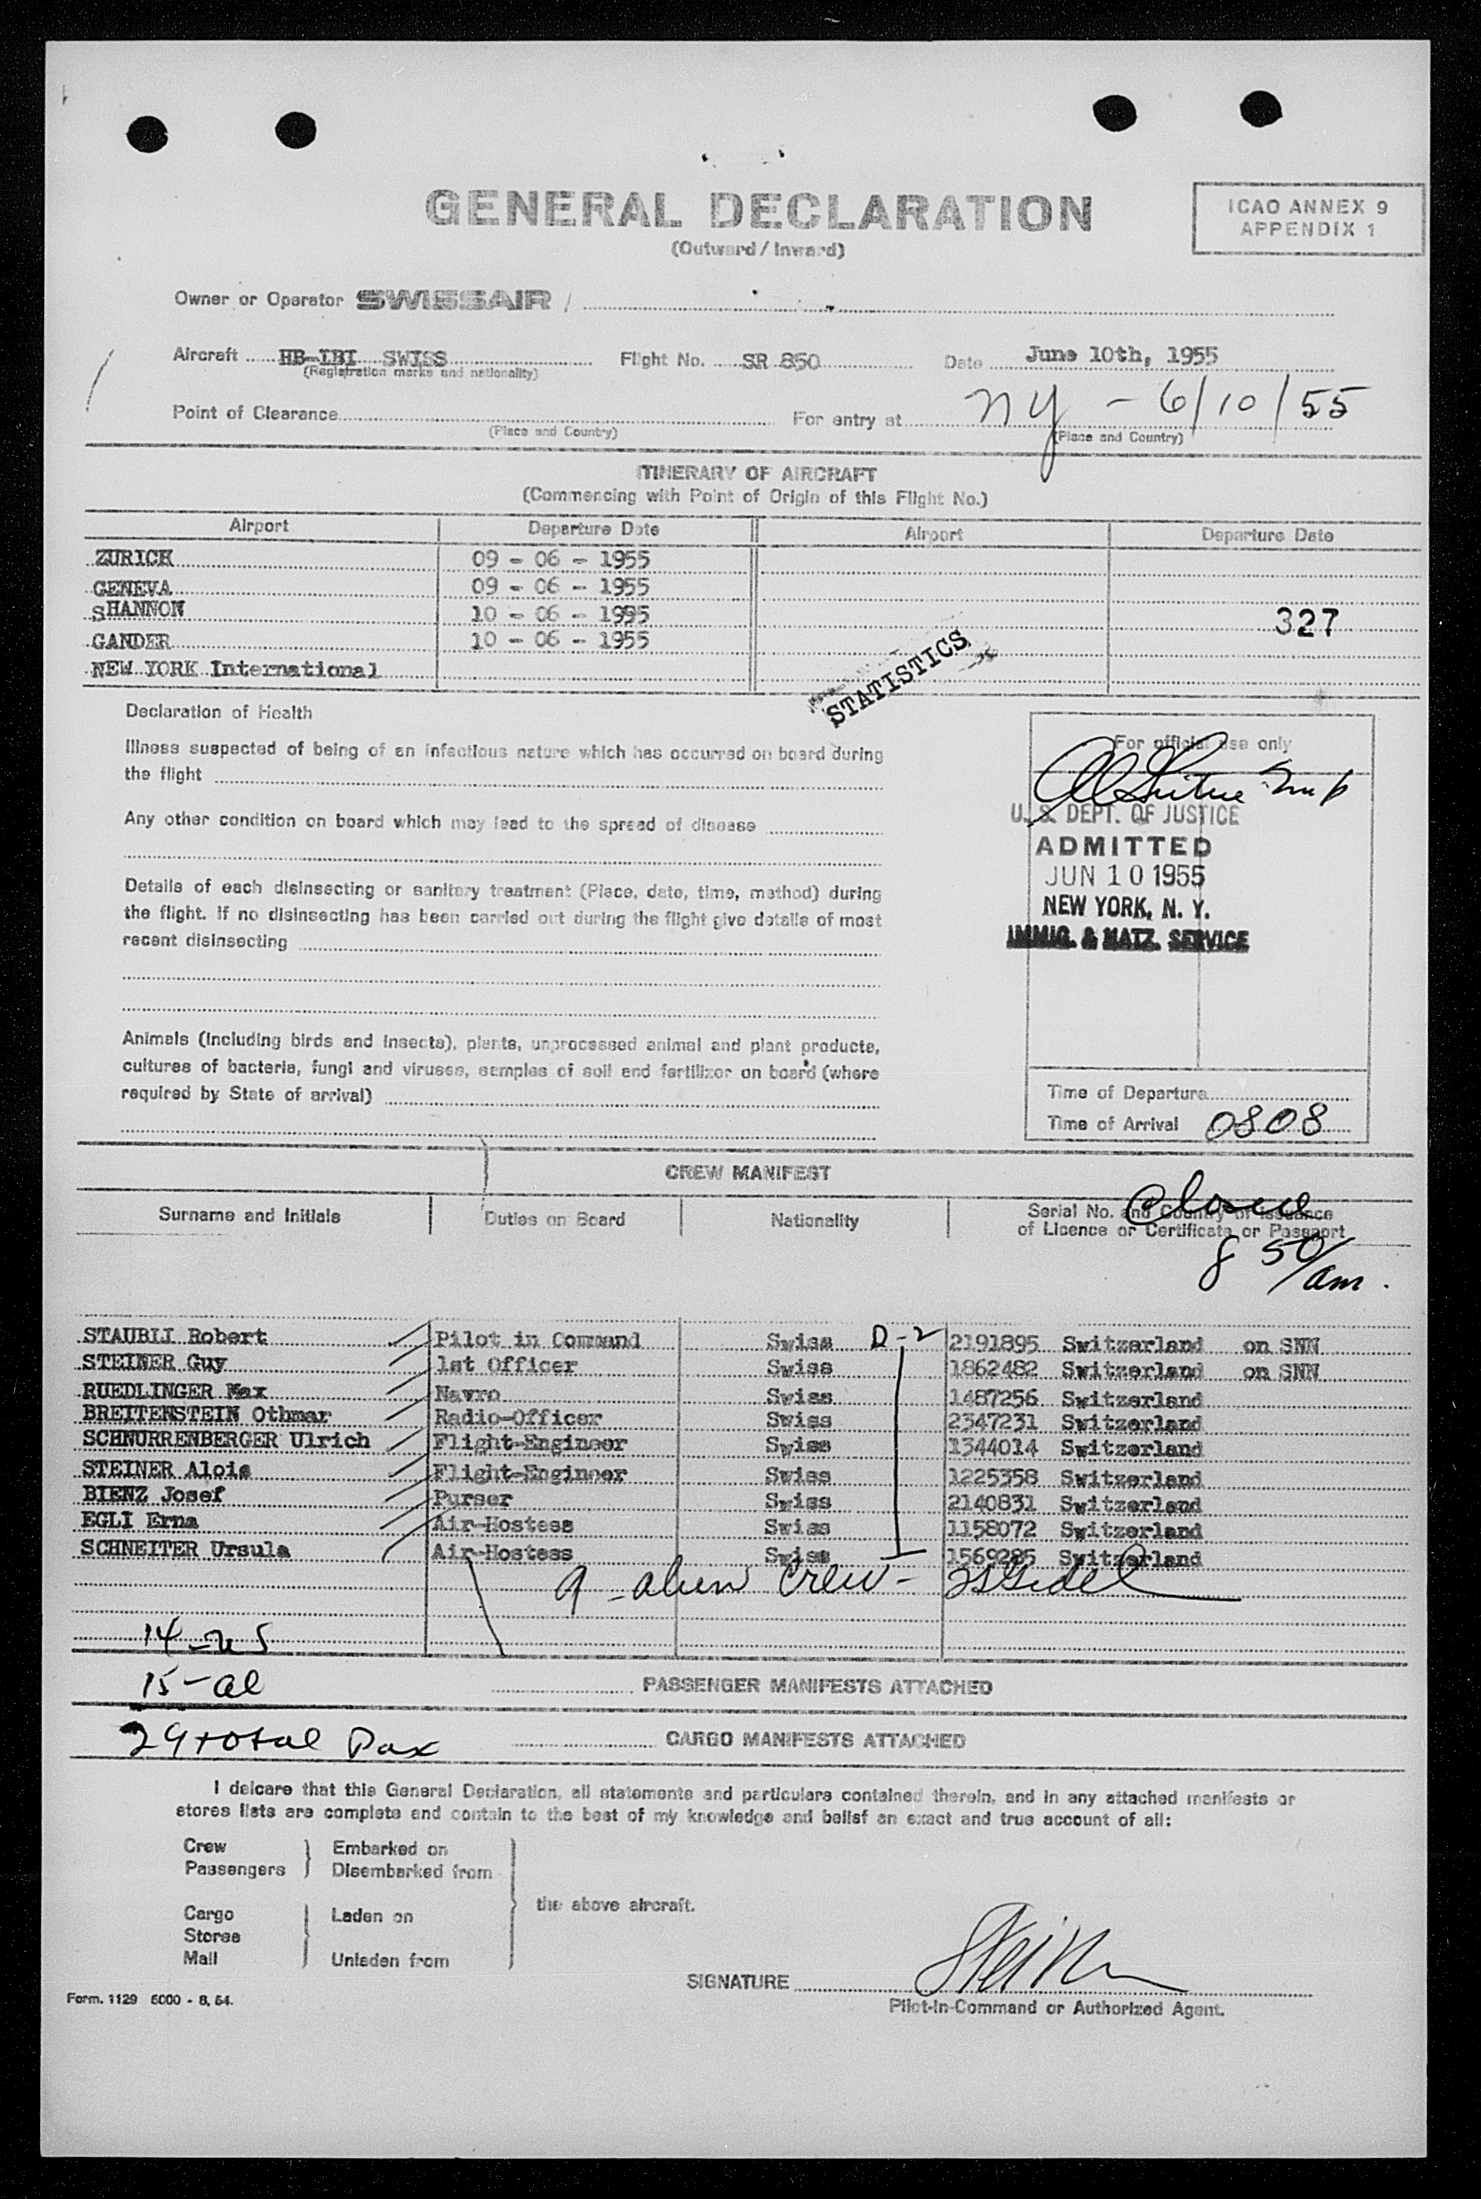 GENERAL DECLARATION
(Outward / Inward)
ICAO ANNEX 9
APPENDIX 1
Owner or Operator SWISSAIR /
Aircraft HB-IBI SWISS Flight No. SR 850 Date June 10th, 1955
(Registration marks and nationality)
Point of Clearance For entry at NY - 6/10/55
(Place and Country) (Place and Country)
ITINERARY OF AIRCRAFT
(Commencing with Point of Origin of this Flight No.)
Airport Departure Date Airport Departure Date
ZURICH 09 - 06 - 1955
GENEVA 09 - 06 - 1955
SHANNON 10 - 06 - 1995 327
GANDER 10 - 06 - 1955
NEW YORK International
STATISTICS
Declaration of Health
Illness suspected of being of an infectious nature which has occurred on board during
the flight
Any other condition on board which may lead to the spread of disease
Details of each disinsecting or sanitary treatment (Place, date, time, method) during
the flight. If no disinsecting has been carried out during the flight give details of most
recent disinsecting
Animals (including birds and insects), plants, unprocessed animal and plant products,
cultures of bacteria, fungi and viruses, samples of soil and fertilizer on board (where
required by State of arrival)
For official use only
U. S. DEPT. OF JUSTICE
ADMITTED
JUN 10 1955
NEW YORK, N. Y.
IMMIG. & NATZ. SERVICE
Time of Departure
Time of Arrival 0808
CREW MANIFEST
Closed
8 50/am.
Surname and Initials Duties on Board Nationality Serial No. and Country of Issuance
of Licence or Certificate or Passport
STAUBLI Robert Pilot in Command Swiss D-2 2191895 Switzerland on SNN
STEINER Guy 1st Officer Swiss 1862482 Switzerland on SNN
RUEDLINGER Max Navro Swiss 1487256 Switzerland
BREITENSTEIN Othmar Radio-Officer Swiss 2347231 Switzerland
SCHNURRENBERGER Ulrich Flight-Engineer Swiss 1344014 Switzerland
STEINER Alois Flight-Engineer Swiss 1225358 Switzerland
BIENZ Josef Purser Swiss 2140831 Switzerland
EGLI Erna Air-Hostess Swiss 1158072 Switzerland
SCHNEITER Ursula Air-Hostess Swiss 1569285 Switzerland
9 - alien crew -
14 - US
15 - al
PASSENGER MANIFESTS ATTACHED
29 total Pax
CARGO MANIFESTS ATTACHED
I delcare that this General Declaration, all statements and particulars contained therein, and in any attached manifests or
stores lists are complete and contain to the best of my knowledge and belief an exact and true account of all:
Crew Embarked on
Passengers Disembarked from
the above aircraft.
Cargo Laden on
Stores
Mail Unladen from
SIGNATURE Steiner
Pilot-in-Command or Authorized Agent.
Form. 1129 5000 - 8. 54.